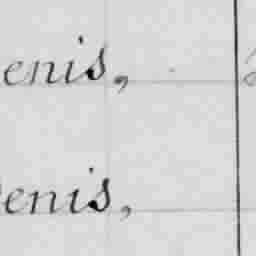 enis,
enis,